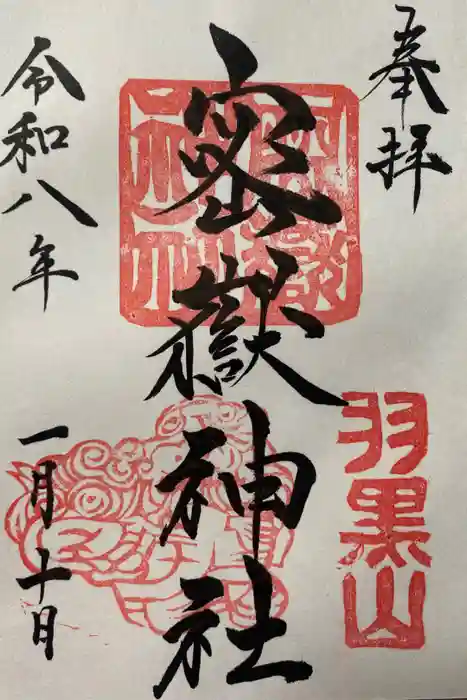 奉拝
羽黒山
密嶽神社
令和八年
一月十日